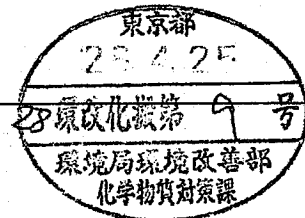 東京都
28.4.25
28環改化第9号
環境局環境改善部
化学物質対策課